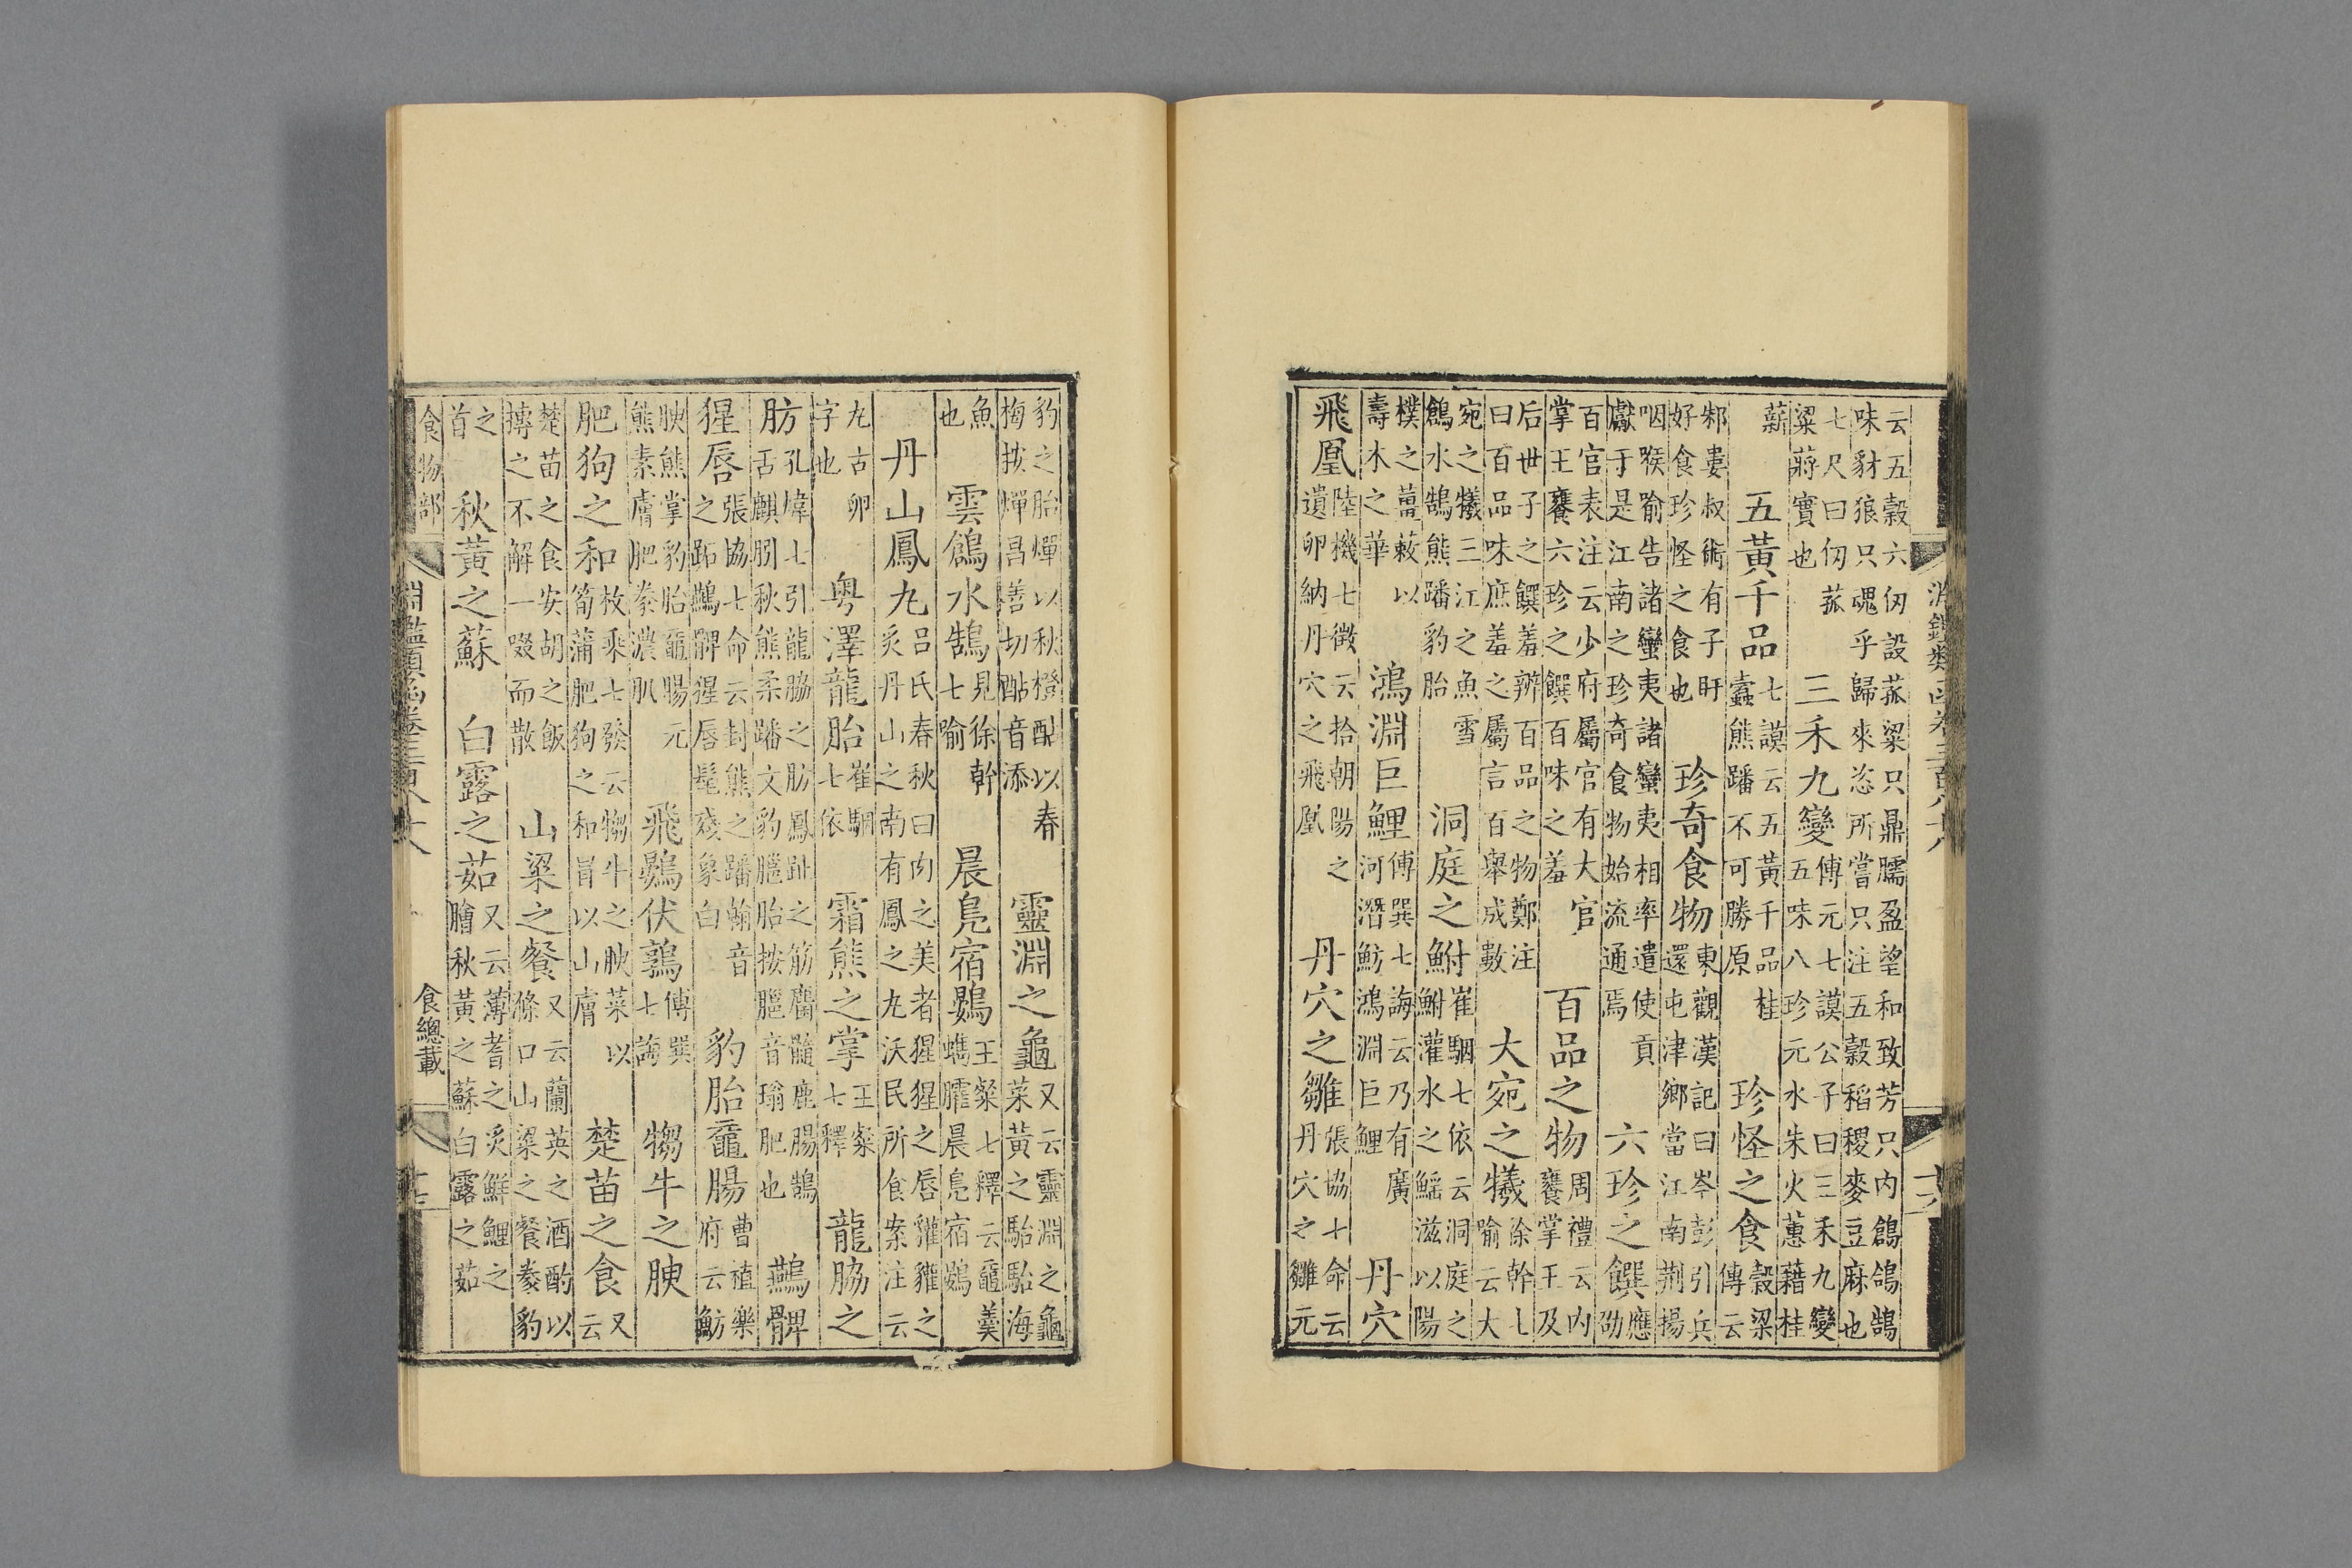 淵鑑類函卷三百八十八
十六
云五穀六仞設菰粱只鼎臑盈望和致芳只内鶬鴿鵠
味豺狼只魂乎歸來恣所嘗只注五穀稻稷麥豆麻也
七尺曰仞菰
粱蔣實也
三禾九變
傅元七謨公子曰三禾九變
五味八珍元水朱火蕙藉桂
薪
五黃千品
七謨云五黃千品桂
蠹熊蹯不可勝原
珍怪之食
穀梁
傳云
邾婁叔術有子盱
好食珍怪之食也
珍奇食物
東觀漢記曰岑彭引兵
還屯津鄉當江南荆揚
咽喉喻告諸蠻夷諸蠻夷相率遣使貢
獻于是江南之珍奇食物始流通焉
六珍之饌
應
劭
百官表注云少府屬官有大官
掌王饔六珍之饌百味之羞
百品之物
周禮云内
饔掌王及
后世子之饌羞辨百品之物鄭注
曰百品味庶羞之屬言百舉成數
大宛之犧
徐幹七
喻云大
宛之犧三江之魚雪
鶬水鵠熊蹯豹胎
洞庭之鮒
崔駰七依云洞庭之
鮒灌水之鰩滋以陽
樸之薑蔌以
壽木之華
鴻淵巨鯉
傅巽七誨云乃有廣
河潛魴鴻淵巨鯉
丹穴
飛凰
陸機七徵云拾朝陽之
遺卵納丹穴之飛凰
丹穴之雛
張協七命云
丹穴之雛元
豹之胎燀以秋橙酟以春
梅按燀昌善切酟音添
靈淵之龜
又云靈淵之龜
菜黃之駘駘海
魚
也
雲鶬水鵠
見徐幹
七喻
晨鳧宿鷃
王粲七釋云黿羹
蠵臛晨鳧宿鷃
丹山鳳丸
吕氏春秋曰肉之美者猩猩之唇獾獾之
炙丹山之南有鳳之丸沃民所食案注云
丸古卵
字也
粤澤龍胎
崔駰
七依
霜熊之掌
王粲
七釋
龍脇之
肪
孔煒七引龍脇之肪鳳趾之筋麕髓鹿腸鵠
舌麒秋熊柔蹯文豹胎按音瑙肥也
鷰髀
猩唇
張協七命云封熊之蹯翰音
之跖鷰髀猩唇髦殘象白
豹胎黿腸
曹植樂
府云魴
腴熊掌豹胎黿腸元
熊素膚肥豢濃肌
飛鷃伏鶉
傅巽
七誨
犓牛之腴
肥狗之和
枚乘七發云犓牛之腴菜以
筍蒲肥狗之和冒以山膚
楚苗之食
又
云
楚苗之食安胡之飯
摶之不解一啜而散
山梁之餐
又云蘭英之酒酌以
滌口山梁之餐豢豹
之
首
秋黃之蘇
白露之茹
又云薄耆之炙鮮鯉之
膾秋黃之蘇白露之茹
食物部
淵鑑類函卷三百八十八
食總載